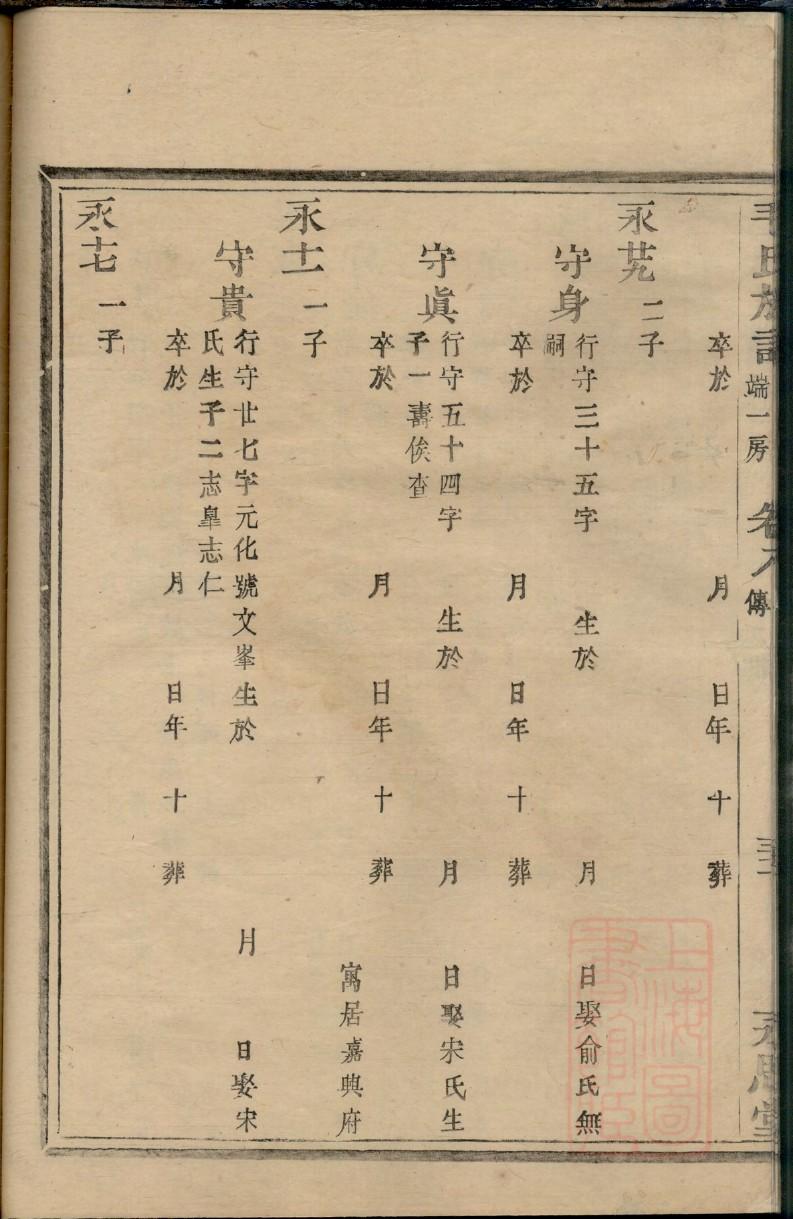 毛氏族譜 端一房 卷八 傳 永思堂
卒於 月 日年 十 葬
永廿九 二子
守身 行守三十五字 生於 月 日娶俞氏無
嗣
卒於 月 日年 十 葬
守眞 行守五十四字 生於 月 日娶宋氏生
子一壽俟查
卒於 月 日年 十 葬
寓居嘉興府
永十一 一子
守貴 行守廿七字元化號文峯生於 月 日娶宋
氏生子二志臯志仁
卒於 月 日年 十 葬
永十七 一子
上海圖
書館藏